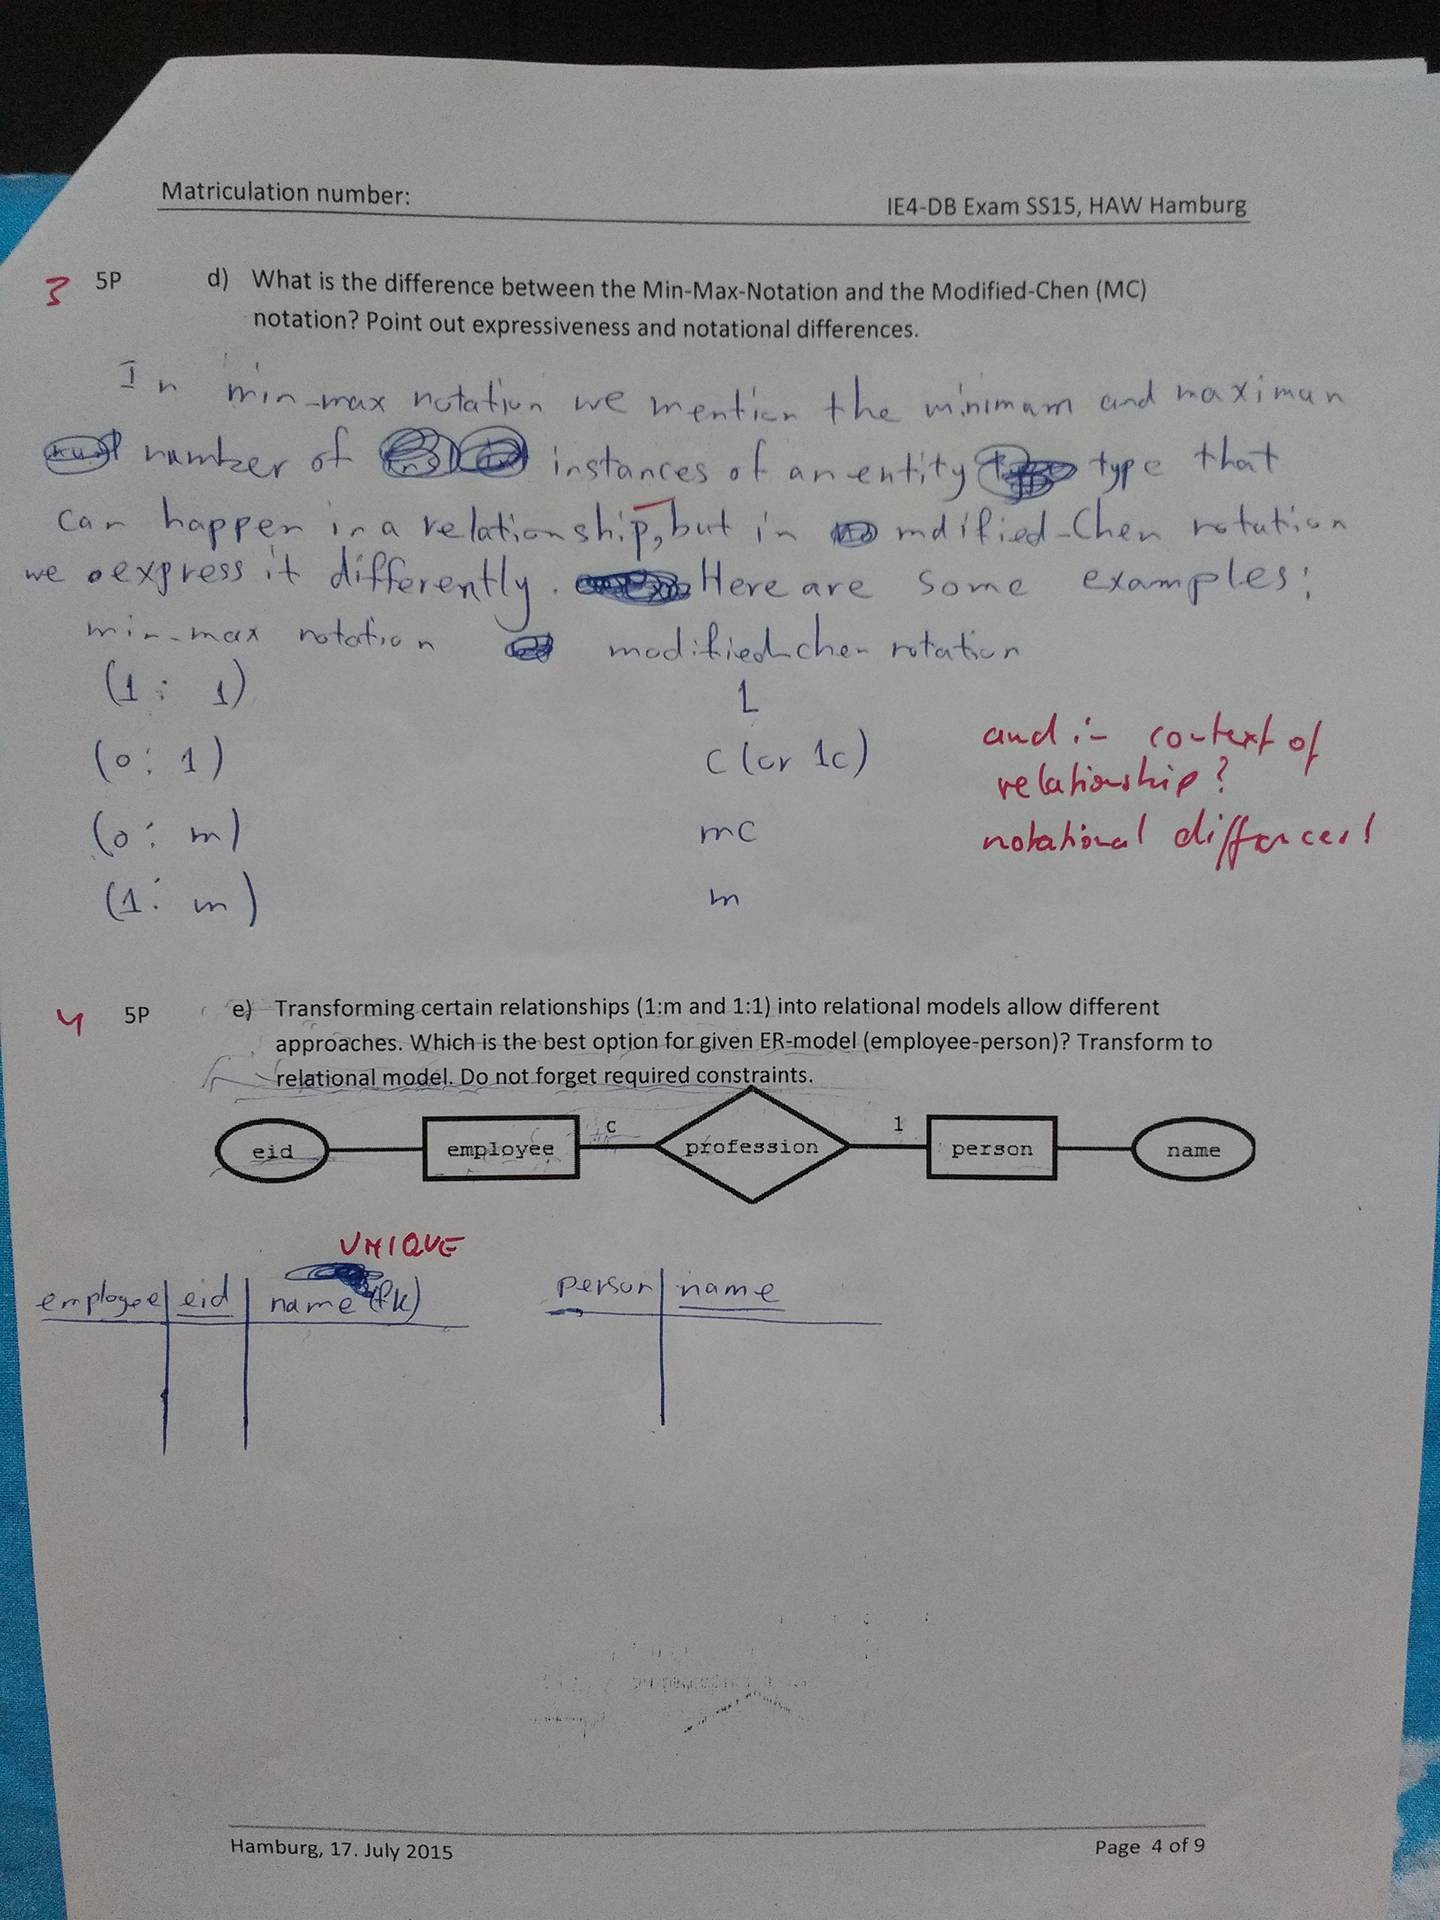 Matriculation number:
IE4-DB Exam SS15, HAW Hamburg
3 5P d) What is the difference between the Min-Max-Notation and the Modified-Chen (MC)
notation? Point out expressiveness and notational differences.
In min-max notation we mention the minimum and maximum
number of instances of an entity type that
can happen in a relationship, but in mdified-Chen notation
we express it differently. Here are some examples:
min-max notation modified-chen notation
(1 : 1) 1
(0 : 1) c (or 1c)
(0 : m) mc
(1 : m) m
and in context of
relationship?
notational differences!
4 5P e) Transforming certain relationships (1:m and 1:1) into relational models allow different
approaches. Which is the best option for given ER-model (employee-person)? Transform to
relational model. Do not forget required constraints.
eid employee c profession 1 person name
UNIQUE
employee eid name (fk) person name
Hamburg, 17. July 2015
Page 4 of 9